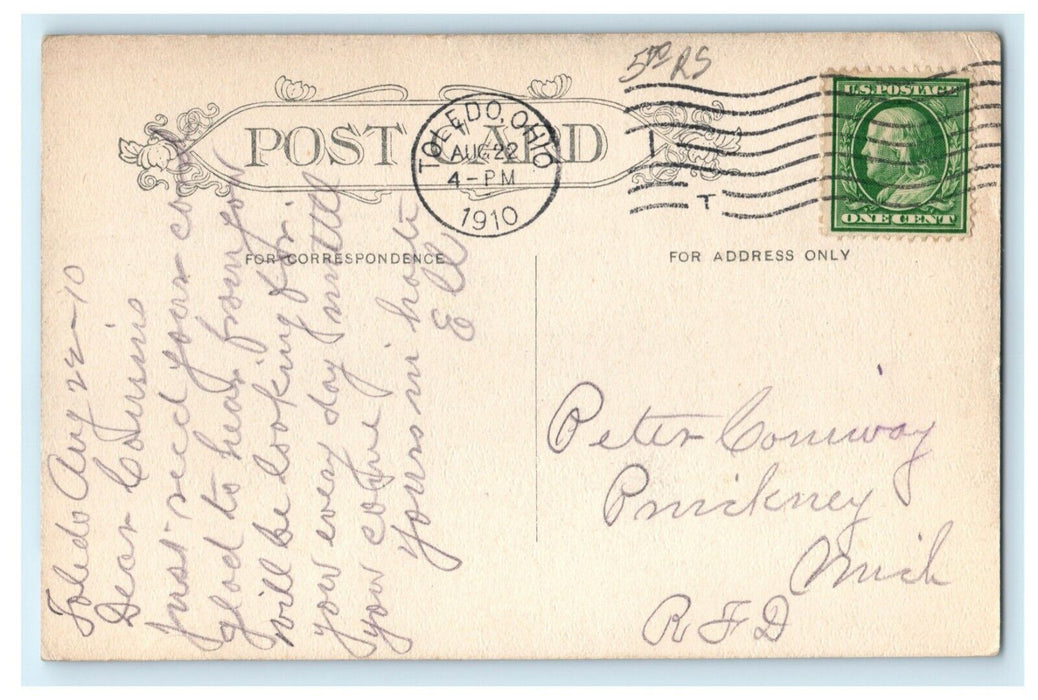 5 RS
POST CARD
TOLEDO, OHIO
AUG 22
4-PM
1910
1
T
U.S. POSTAGE
ONE CENT
FOR CORRESPONDENCE
FOR ADDRESS ONLY
Toledo Aug 22-10
Dear Cousins
Just recd your card
glad to hear from you
will be looking for
you every day until
you come
Yours in haste
Ell
Peter Conway
Pinckney
Mich
RFD